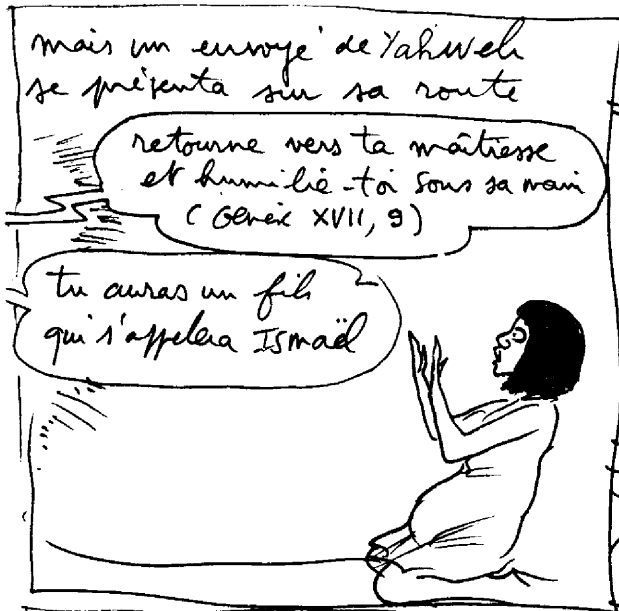 mais un envoyé de Yahweh
se présenta sur sa route
retourne vers ta maîtresse
et humilie-toi sous sa main
(Genèse XVII, 9)
tu auras un fils
qui s'appelera Ismaël